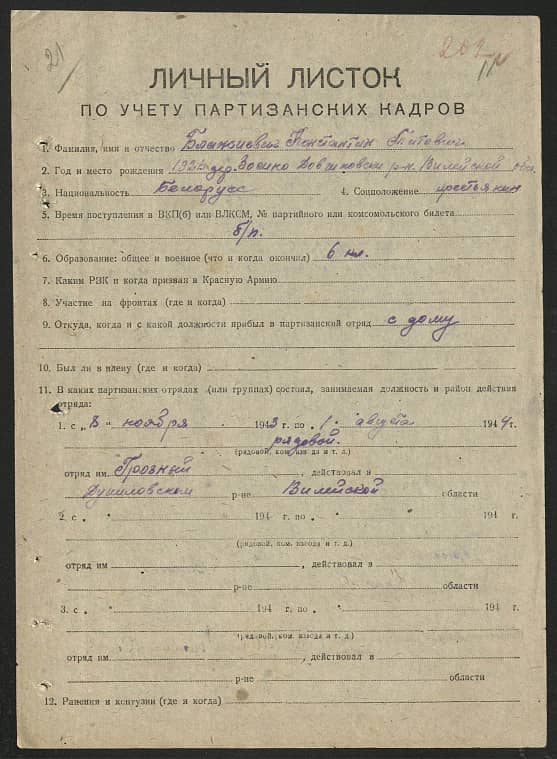 21
ЛИЧНЫЙ ЛИСТОК
ПО УЧЕТУ ПАРТИЗАНСКИХ КАДРОВ
1. Фамилия, имя и отчество Константин
2. Год и место рождения р-н. Вилейской обл.
3. Национальность Белорусс 4. Соцположение крестьянин
5. Время поступления в ВКП(б) или ВЛКСМ, № партийного или комсомольского билета
б/п.
6. Образование: общее и военное (что и когда окончил) 6 кл.
7. Каким РВК и когда призван в Красную Армию
8. Участие на фронтах (где и когда)
9. Откуда, когда и с какой должности прибыл в партизанский отряд с дому
10. Был ли в плену (где и когда)
11. В каких партизанских отрядах (или группах) состоял, занимаемая должность и район действия
отряда:
1. с „8 " ноября 1943 г. по „ 1 " августа 1944 г.
рядовой.
(рядовой, ком. взвода и т. д.)
отряд им Грозный , действовал в
Дуниловском р-не Вилейской области
2. с „ " 194 г. по „ " 194 г.
(рядовой, ком. взвода и т. д.)
отряд им , действовал в
р-не области
3. с „ " 194 г. по „ " 194 г.
(рядовой, ком. взвода и т. д.)
отряд им , действовал в
р-не области
12. Ранения и контузии (где и когда)